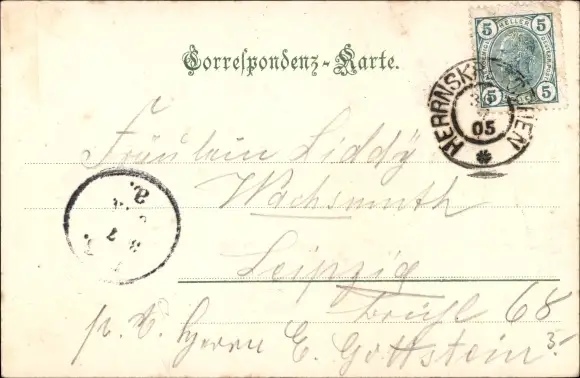 Correspondenz-Karte.
5 HELLER 5
5 5
HERRNSKRETSCHEN
05
Fräulein Liddy
Wachsmuth
Leipzig
Brühl 68
p. A. Herrn E. Gottstein